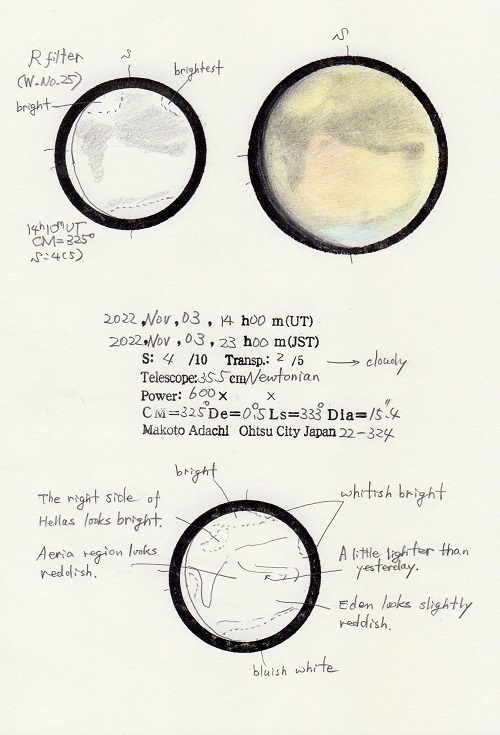 R filter
(W-No.25)
S
brightest
bright
S
14h10mUT
CM=325°
S=4(5)
2022, Nov, 03, 14 h00 m(UT)
2022, Nov, 03, 23 h00 m(JST)
S: 4 /10 Transp.: 2 /5 → cloudy
Telescope: 35.5 cm Newtonian
Power: 600 × ×
CM=325° De=0°.5 Ls=333° Dia=15".4
Makoto Adachi Ohtsu City Japan 22-324
bright
The right side of
Hellas looks bright.
whitish bright
Aeria region looks
reddish.
A little lighter than
yesterday.
Eden looks slightly
reddish.
bluish white